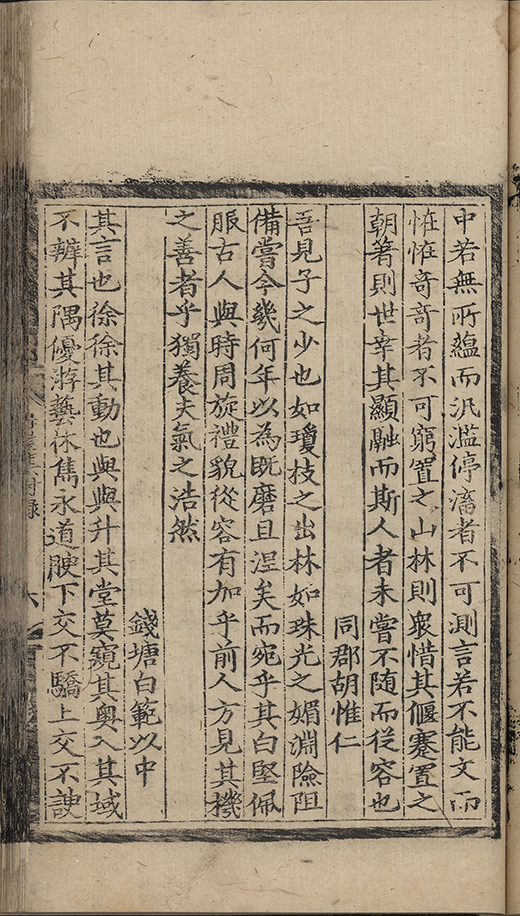 中若無所蘊而汎濫停滀者不可測言若不能文而
恠恠奇奇者不可窮置之山林則衆惜其偃蹇置之
朝著則世幸其顯融而斯人者未嘗不隨而從容也
同郡胡惟仁
吾見子之少也如瓊枝之出林如珠光之媚淵險阻
備嘗今幾何年以為既磨且涅矣而宛乎其白堅佩
服古人與時周旋禮貌從容有加乎前人方見其機
之善者乎獨養夫氣之浩然
錢塘白範以中
其言也徐徐其動也與與升其堂莫窺其奧入其域
不辨其隅優游藝林雋永道腴下交不驕上交不諛
附錄
六